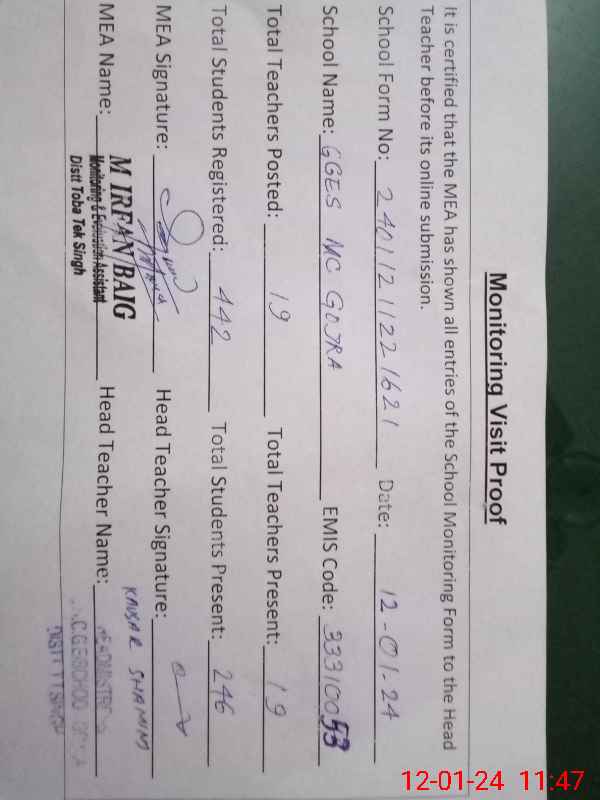 Monitoring Visit Proof
It is certified that the MEA has shown all entries of the School Monitoring Form to the Head
Teacher before its online submission.
School Form No: 24011211221621 Date: 12-01-24
School Name: GGES MC GOJRA EMIS Code: 33310053
Total Teachers Posted: 19 Total Teachers Present: 19
Total Students Registered: 442 Total Students Present: 246
MEA Signature: Head Teacher Signature:
KAUSAR SHAMIM
MEA Name: M IRFAN BAIG Head Teacher Name:
Monitoring & Evaluation Assistant
Distt Toba Tek Singh
HEADMISTRESS
12-01-24 11:47